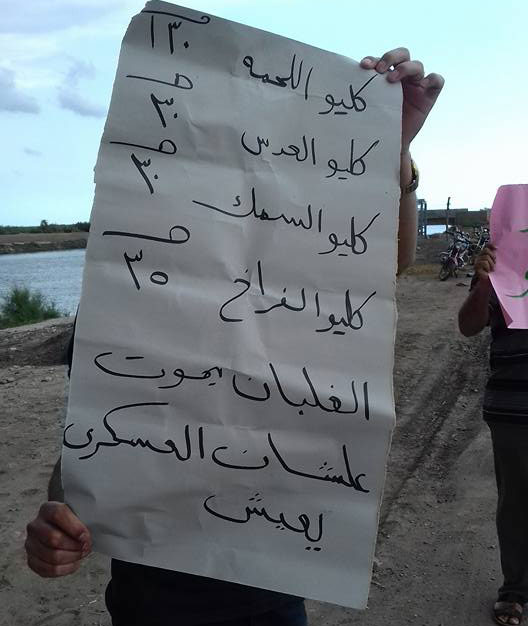 كليو اللحمه ١٣٠ جـ
كليو العدس ٣٠ جـ
كليو السمك ٣٠ جـ
كليو الفراخ ٣٥ جـ
الغلبان يموت
علشان العسكرى
يعيش